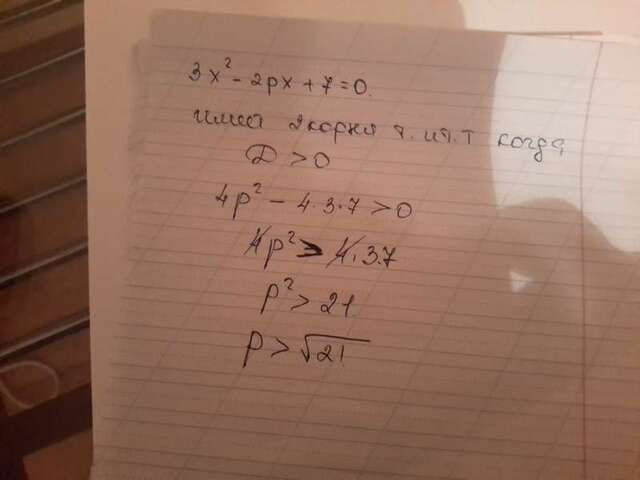 3x² - 2px + 7 = 0.
има 2 корня т. и т. т когда
D > 0
4p² - 4·3·7 > 0
4p² > 4·3·7
p² > 21
p > √21